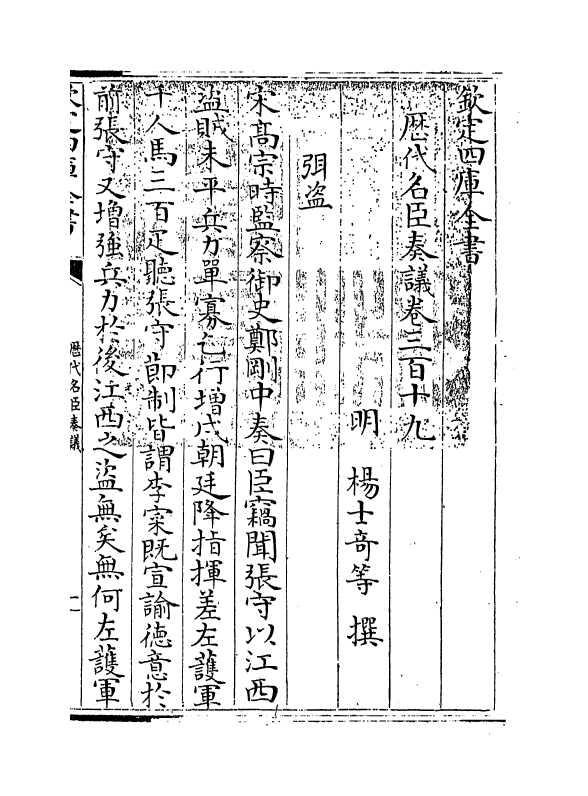 欽定四庫全書
歷代名臣奏議卷三百十九
明 楊士竒等 撰
弭盗
宋髙宗時監察御史鄭剛中奏曰臣竊聞張守以江西
盗賊未平兵力單寡乞行增戍朝廷降指揮差左䕶軍
千人馬三百疋聽張守節制皆謂李寀既宣諭徳意於
前張守又增強兵力於後江西之盗無矣無何左䕶軍
歷代名臣奏議
一